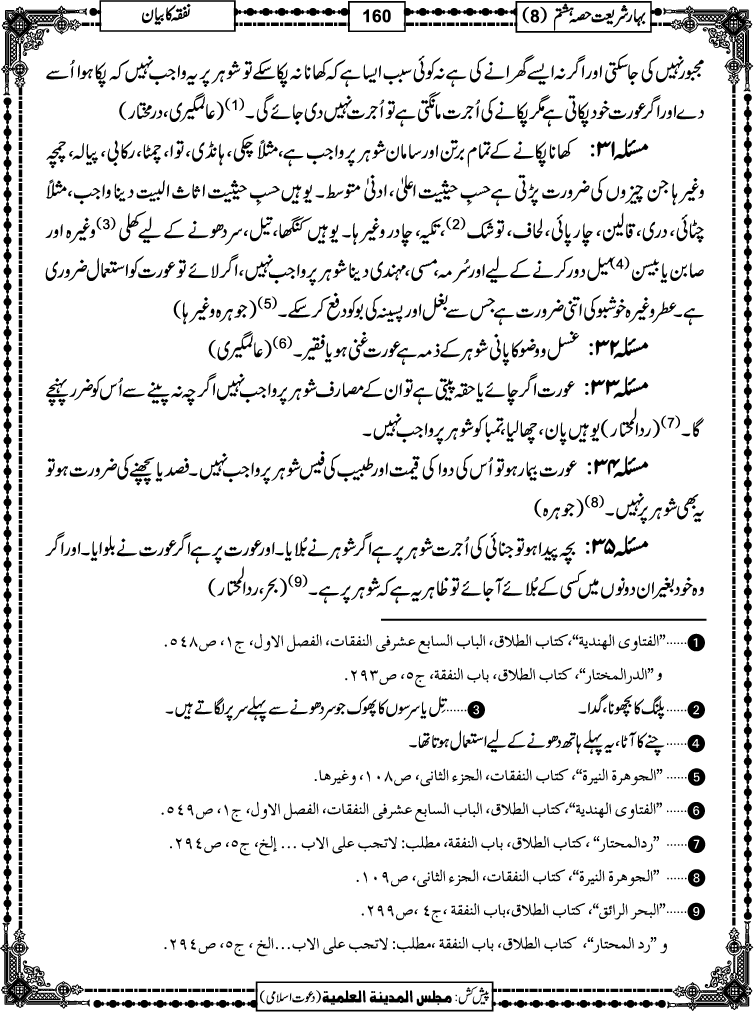 بہارِ شریعت حصہ ہشتم (8)
160
نفقہ کا بیان
مجبور نہیں کی جاسکتی اور اگر نہ ایسے گھرانے کی ہے نہ کوئی سبب ایسا ہے کہ کھانا نہ پکا سکے تو شوہر پر یہ واجب نہیں کہ پکا ہوا اُسے
دے اور اگر عورت خود پکاتی ہے مگر پکانے کی اُجرت مانگتی ہے تو اُجرت نہیں دی جائے گی۔(1) (عالمگیری، درمختار)
مسئلہ ۳۱: کھانا پکانے کے تمام برتن اور سامان شوہر پر واجب ہے، مثلاً چکی، ہانڈی، توا، چمٹا، رکابی، پیالہ، چمچہ
وغیرہا جن چیزوں کی ضرورت پڑتی ہے حسبِ حیثیت اعلیٰ، ادنیٰ متوسط۔ یوہیں حسبِ حیثیت اثاث البیت دینا واجب، مثلاً
چٹائی، دری، قالین، چارپائی، لحاف، توشک(2)، تکیہ، چادر وغیرہا۔ یوہیں کنگھا، تیل، سر دھونے کے لیے کھلی(3) وغیرہ اور
صابن یا بیسن(4) میل دور کرنے کے لیے اور سُرمہ، مسی، مہندی دینا شوہر پر واجب نہیں، اگر لائے تو عورت کو استعمال ضروری
ہے۔ عطر وغیرہ خوشبو کی اتنی ضرورت ہے جس سے بغل اور پسینہ کی بو کو دفع کرسکے۔(5) (جوہرہ وغیرہا)
مسئلہ ۳۲: غسل و وضو کا پانی شوہر کے ذمہ ہے عورت غنی ہو یا فقیر۔(6) (عالمگیری)
مسئلہ ۳۳: عورت اگر چائے یا حقہ پیتی ہے تو ان کے مصارف شوہر پر واجب نہیں اگرچہ نہ پینے سے اُس کو ضرر پہنچے
گا۔(7) (ردالمحتار) یوہیں پان، چھالیا، تمباکو شوہر پر واجب نہیں۔
مسئلہ ۳۴: عورت بیمار ہو تو اُس کی دوا کی قیمت اور طبیب کی فیس شوہر پر واجب نہیں۔ فصد یا پچھنے کی ضرورت ہو تو
یہ بھی شوہر پر نہیں۔(8) (جوہرہ)
مسئلہ ۳۵: بچہ پیدا ہو تو جنائی کی اُجرت شوہر پر ہے اگر شوہر نے بُلایا۔ اور عورت پر ہے اگر عورت نے بلوایا۔ اور اگر
وہ خود بغیر ان دونوں میں کسی کے بُلائے آجائے تو ظاہر یہ ہے کہ شوہر پر ہے۔(9) (بحر، ردالمحتار)
1......"الفتاوی الھندیة"، کتاب الطلاق، الباب السابع عشرفی النفقات، الفصل الاول، ج١، ص٥٤٨.
و "الدرالمختار"، کتاب الطلاق، باب النفقة، ج٥، ص٢٩٣.
2......پلنگ کا بچھونا، گدا۔ 3......تِل یا سرسوں کا پھوک جو سر دھونے سے پہلے سر پر لگاتے ہیں۔
4......چنے کا آٹا، یہ پہلے ہاتھ دھونے کے لیے استعمال ہوتا تھا۔
5......"الجوھرة النیرة"، کتاب النفقات، الجزء الثانی، ص١٠٨، وغیرھا.
6......"الفتاوی الھندیة"، کتاب الطلاق، الباب السابع عشرفی النفقات، الفصل الاول، ج١، ص٥٤٩.
7......"ردالمحتار"، کتاب الطلاق، باب النفقة، مطلب: لاتجب علی الاب ... إلخ، ج٥، ص٢٩٤.
8......"الجوھرة النیرة"، کتاب النفقات، الجزء الثانی، ص١٠٩.
9......"البحر الرائق"، کتاب الطلاق، باب النفقة، ج٤، ص٢٩٩.
و "رد المحتار"، کتاب الطلاق، باب النفقة، مطلب: لاتجب علی الاب...الخ، ج٥، ص٢٩٤.
پیش کش: مجلس المدینة العلمیة (دعوت اسلامی)